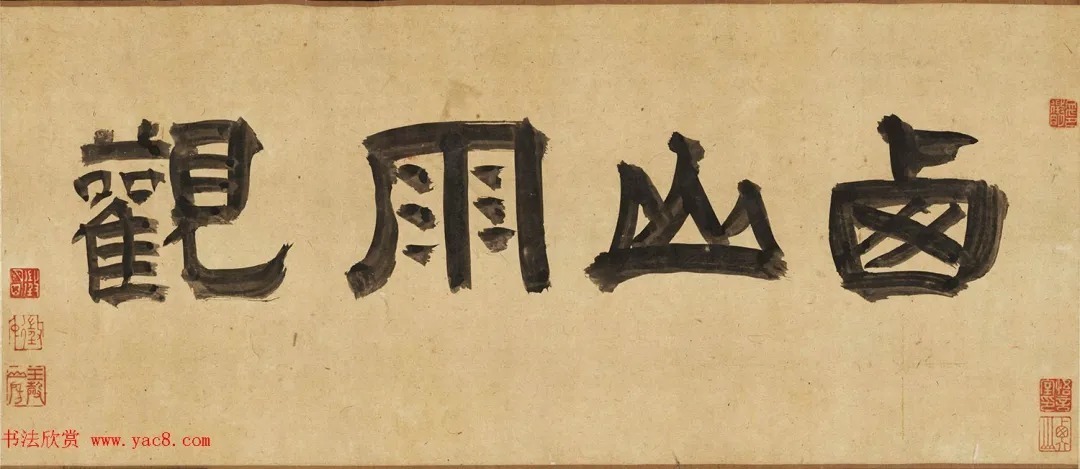 西山雨觀
书法欣赏 www.yac8.com